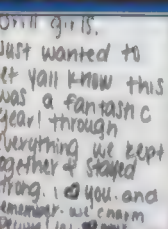 Drill girls.
Just wanted to
let yall know this
was a fantastic
year! through
everything we kept
together & stayed
strong. I you. and